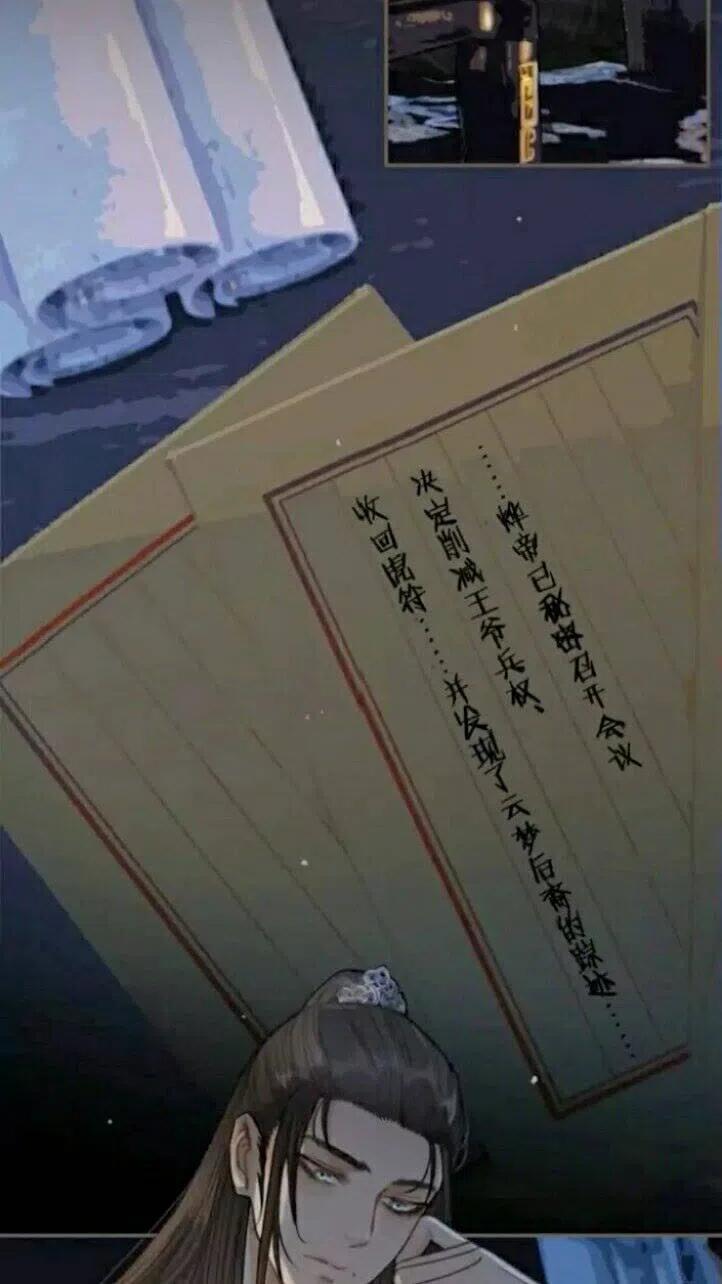 ……烨帝已秘密召开会议
决定削减王爷兵权、
收回虎符……并发现了云梦后裔的踪迹……